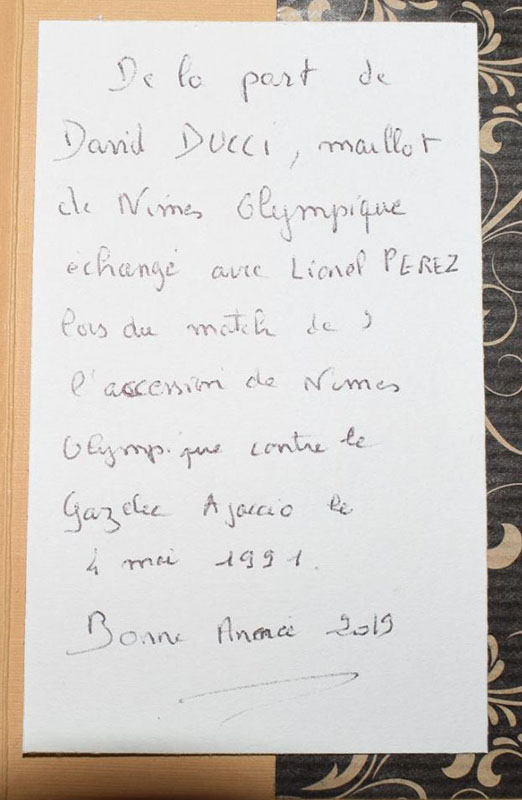 De la part de
David DUCCI, maillot
de Nimes Olympique
échangé avec Lionel PEREZ
lors du match de
l'accession de Nimes
Olympique contre le
Gazelec Ajaccio le
4 mai 1991.
Bonne Année 2019